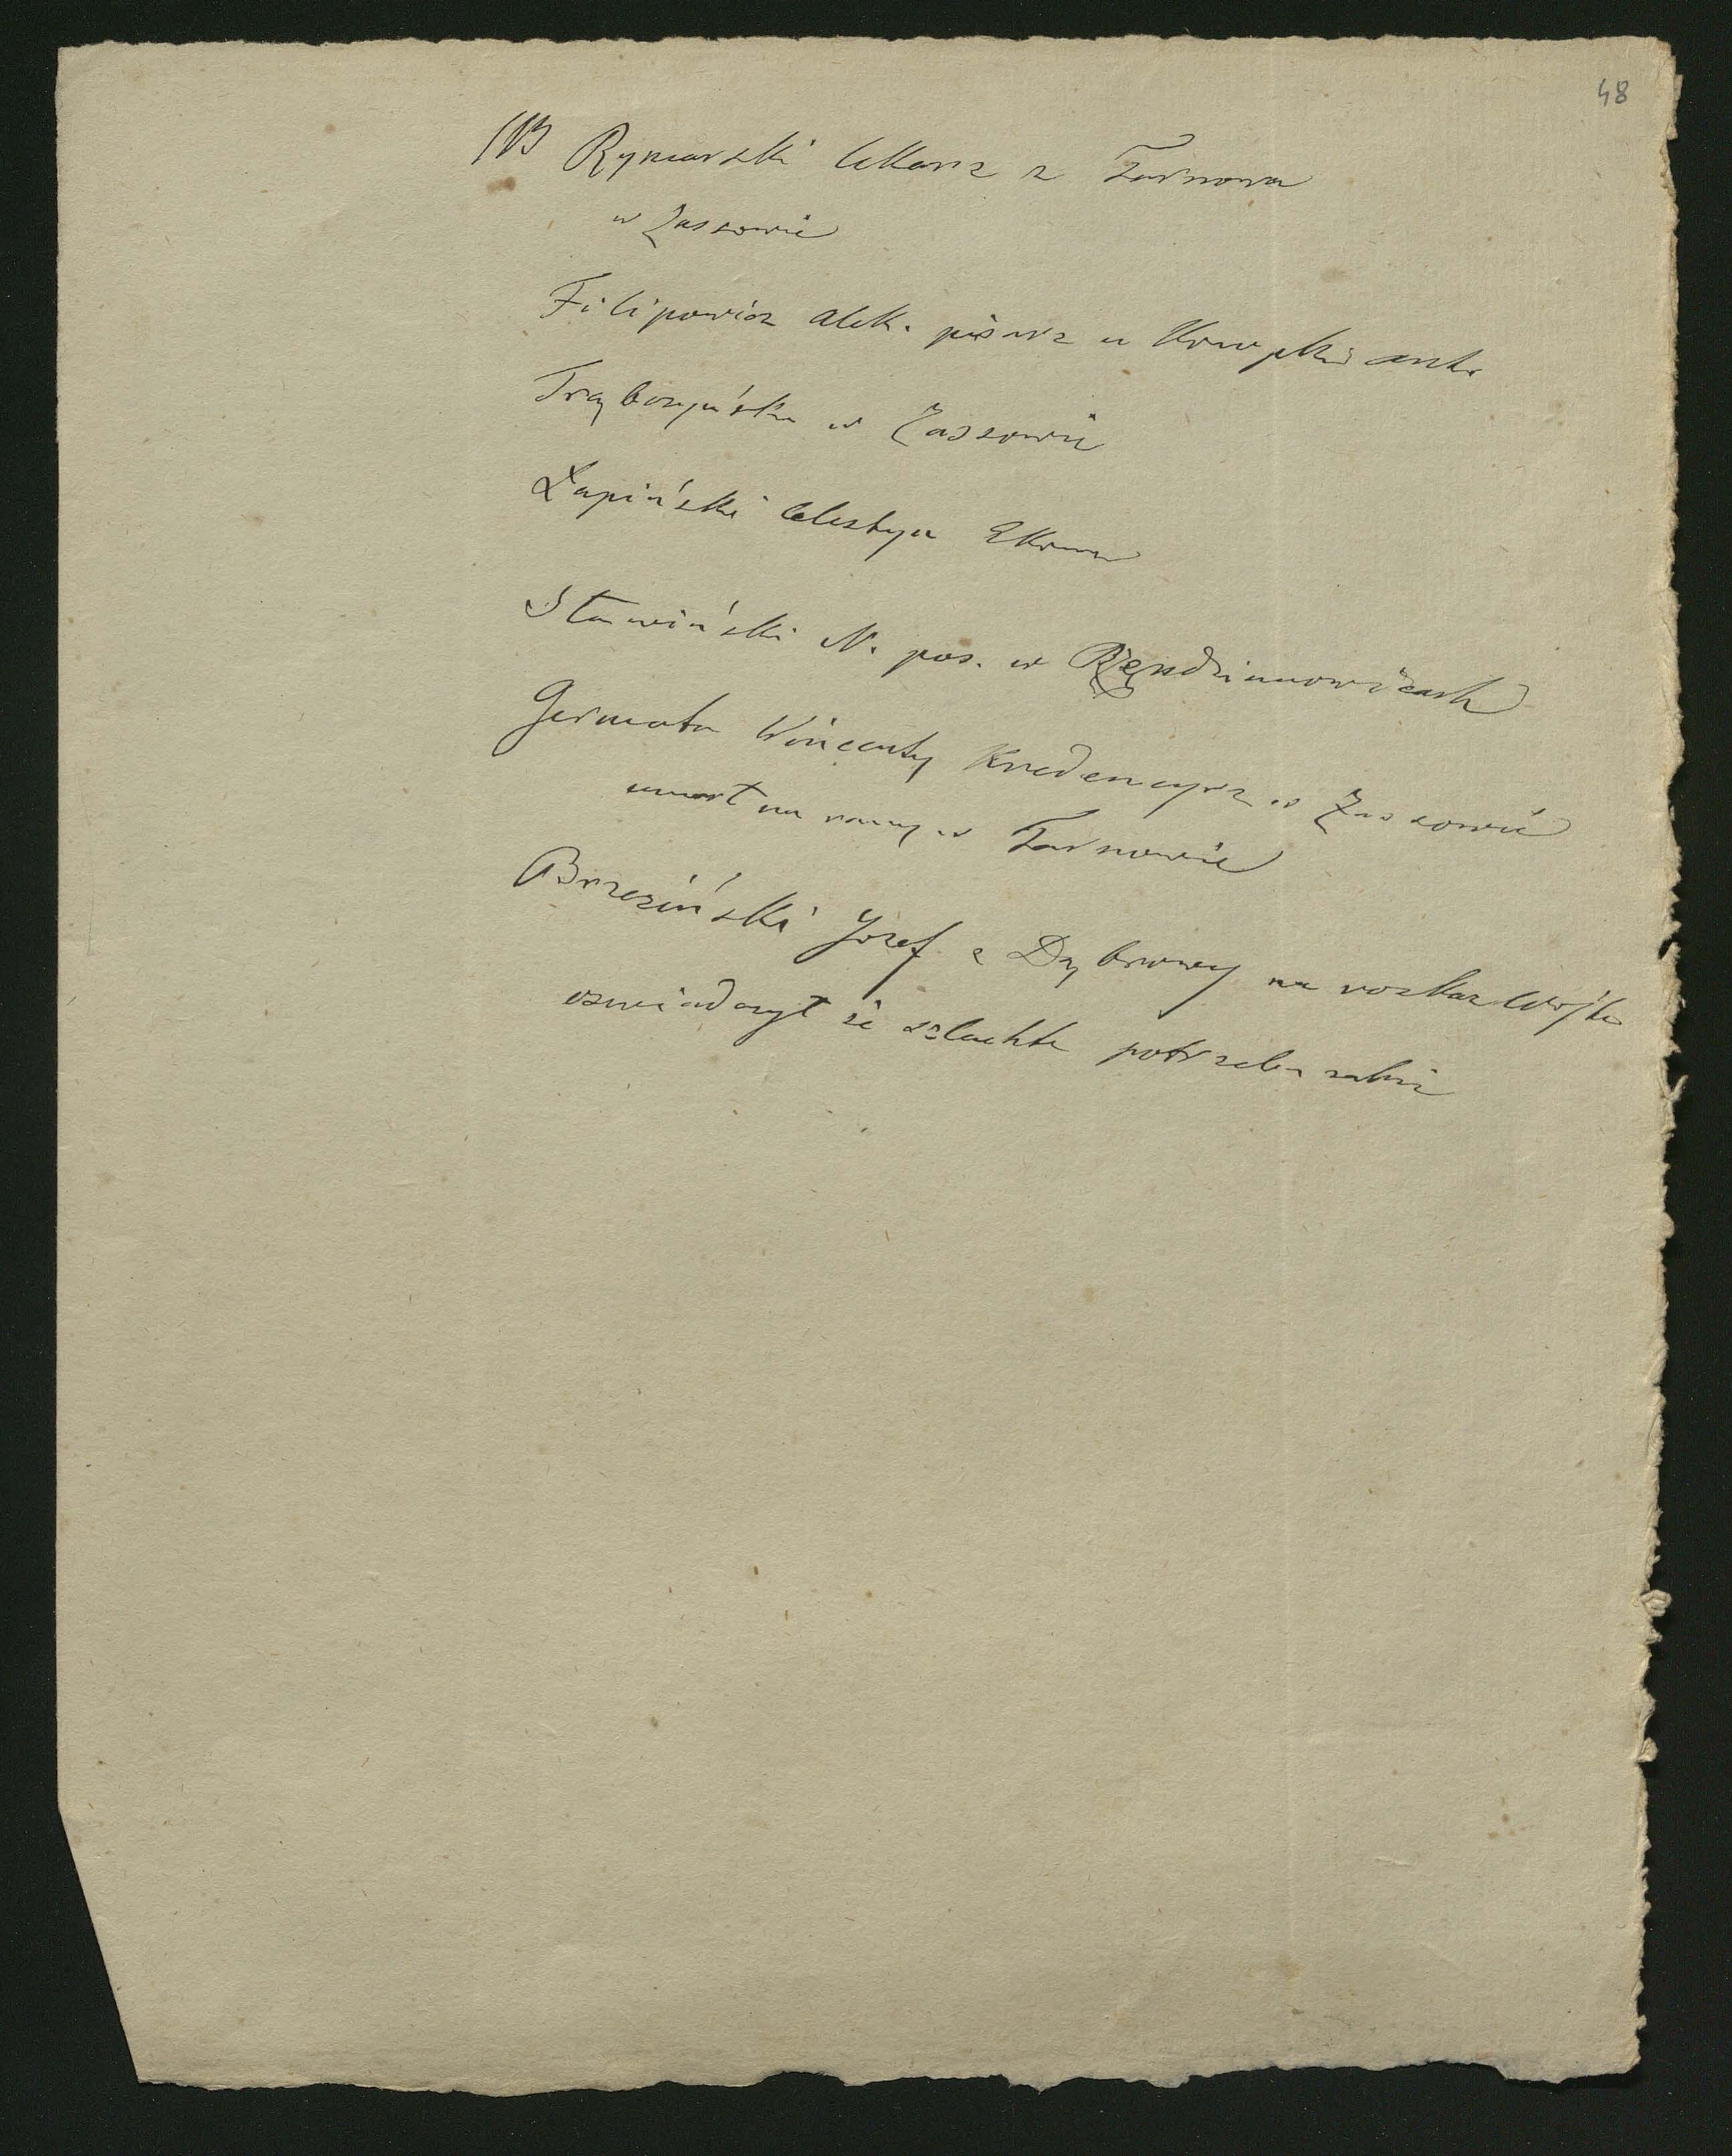 48
Rymarski lekarz z Tarnowa
w Zassowie
Filipowicz Alek. pisarz u
Trąbczyński w Zassowie
Łapiński Celestyn Ekonom
Stawiński N. pos. w Rzędzianowicach
Germata Wincenty Kredencyrz w Zassowie
umarł na rany w Tarnowie
Brzeziński Józef z Dąbrowy na rozkaz Wójta
oswiadczył że szlachte potrzeba zabić